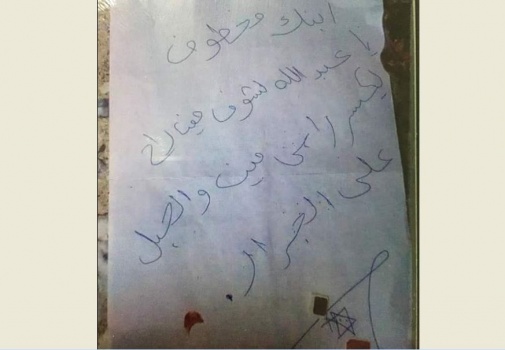 ابنك مخطوف
يا عبد الله لنشوف مينا راح
يكسر راس مين والحبل
على الجرار.